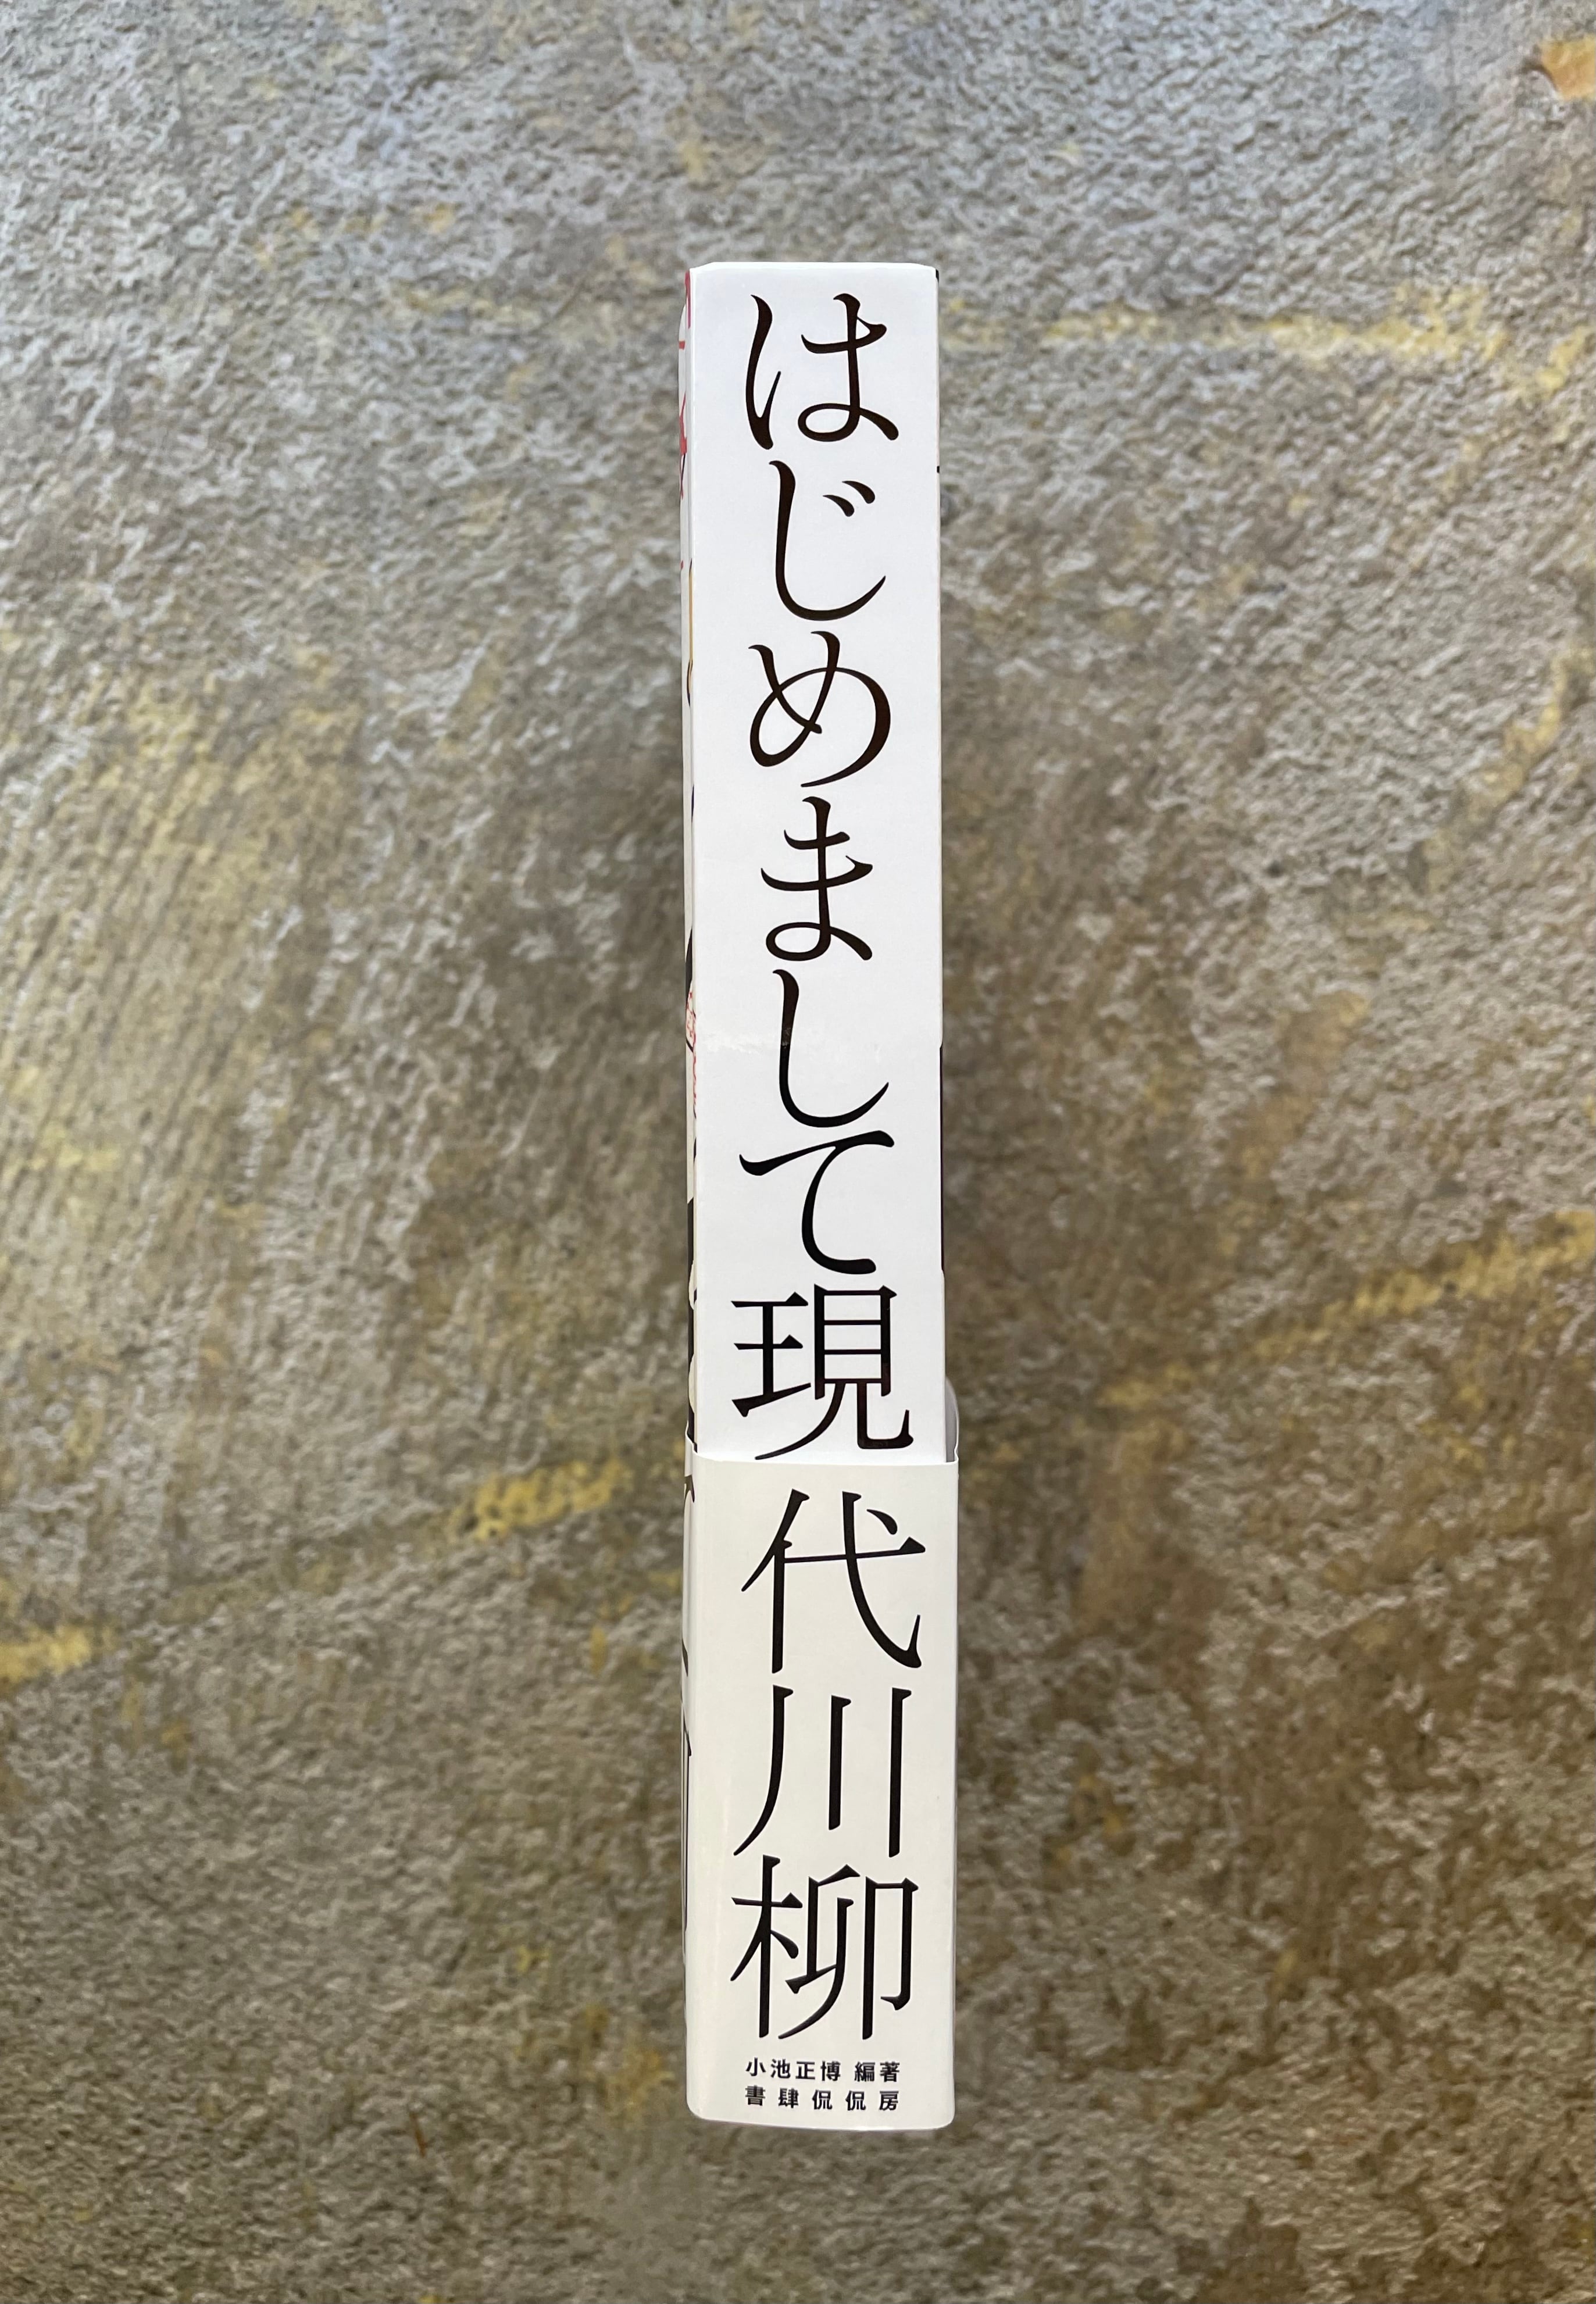 はじめまして現代川柳
小池正博 編著
書肆侃侃房